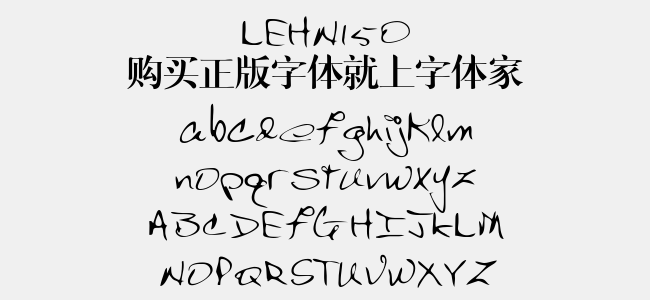 LEHN150
购买正版字体就上字体家
abcdefghijklm
nopqrstuvwxyz
ABCDEFGHIJKLM
NOPQRSTUVWXYZ